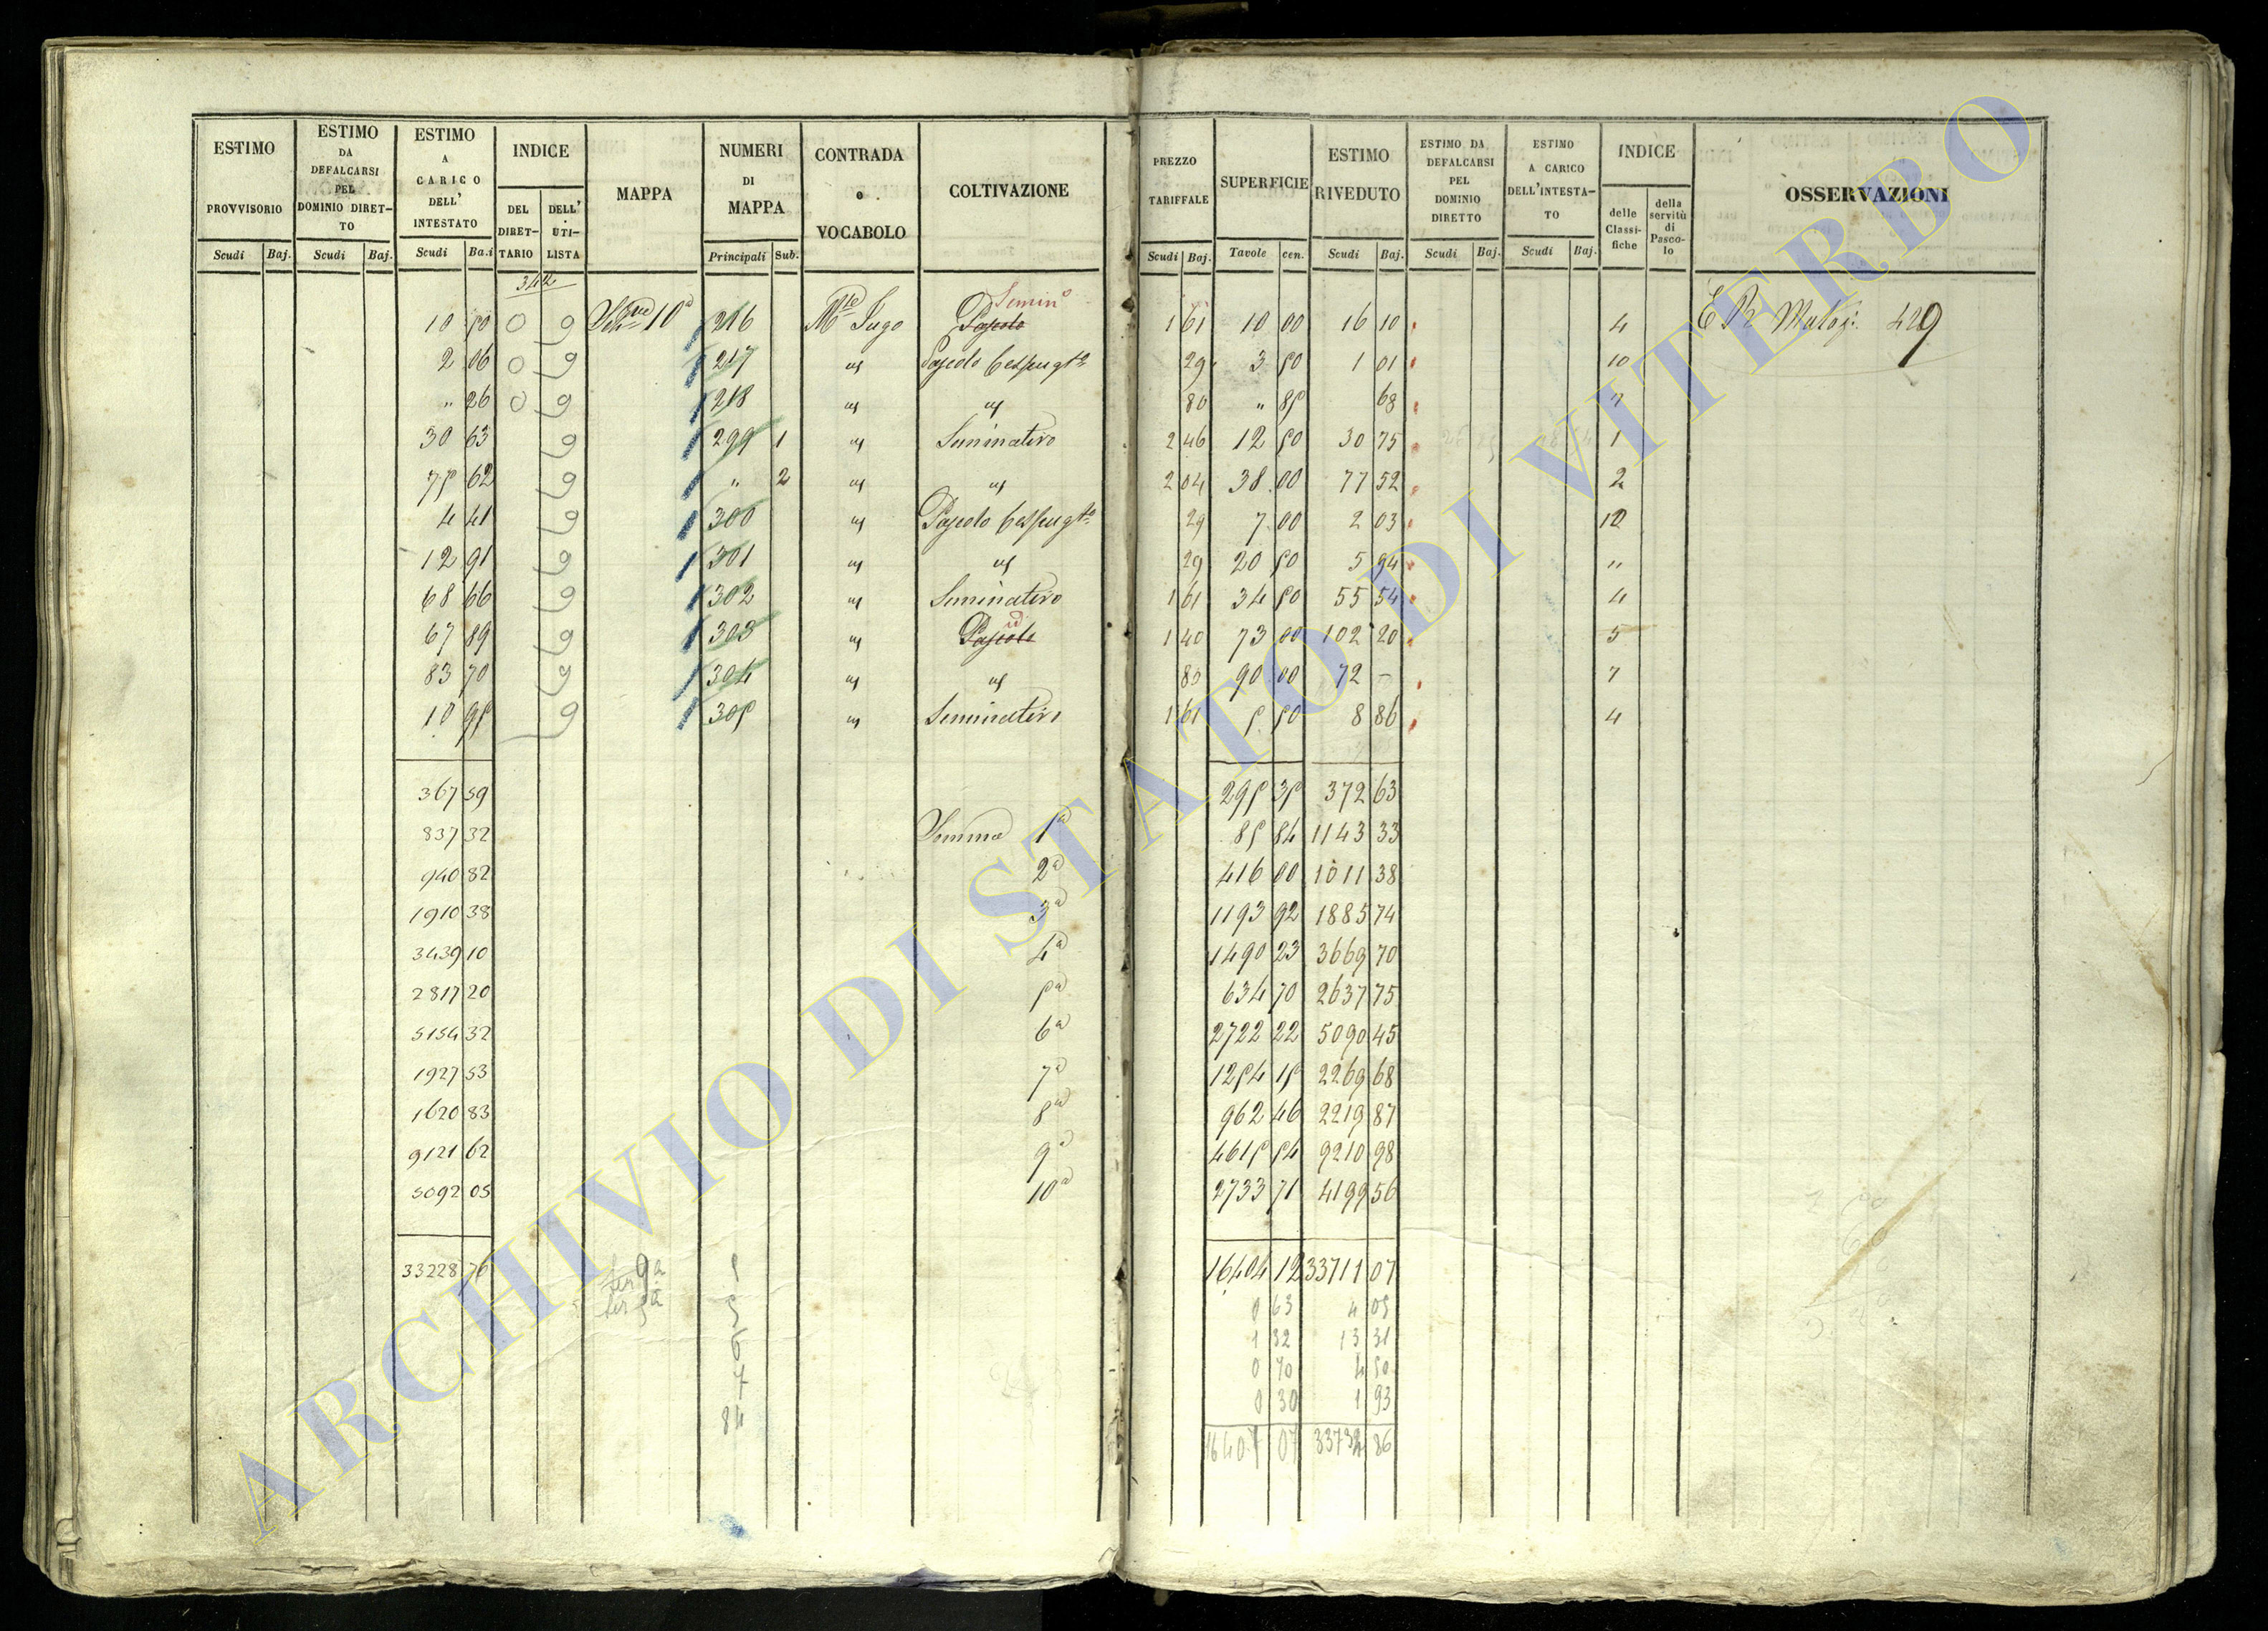 ESTIMO PROVVISORIO Scudi Baj.
ESTIMO DA DEFALCARSI PEL DOMINIO DIRETTO Scudi Baj.
ESTIMO A CARICO DELL' INTESTATO Scudi Ba.i
INDICE DEL DIRETTARIO DELL' UTILISTA
MAPPA
NUMERI DI MAPPA Principali Sub.
CONTRADA o VOCABOLO
COLTIVAZIONE
PREZZO TARIFFALE Scudi Baj.
SUPERFICIE Tavole cen.
ESTIMO RIVEDUTO Scudi Baj.
ESTIMO DA DEFALCARSI PEL DOMINIO DIRETTO Scudi Baj.
ESTIMO A CARICO DELL'INTESTATO Scudi Baj.
INDICE delle Classifiche della servitù di Pascolo
OSSERVAZIONI
342
Semin°
10 50 0 9 10ª 216 Mte Sugo Pascolo 1 61 10 00 16 10 4 429
2 06 0 9 217 " Pascolo Cespugto 29 3 50 1 01 10
" 26 0 9 218 " " 80 " 85 68 7
30 63 9 299 1 " Seminativo 2 46 12 50 30 75 1
75 62 9 " 2 " " 2 04 38 00 77 52 2
4 41 9 300 " Pascolo Cespugto 29 7 00 2 03 10
12 91 9 301 " " 29 20 50 5 94 "
68 66 9 302 " Seminativo 1 61 34 50 55 54 4
id
67 89 9 303 " Pascolo 1 40 73 00 102 20 5
83 70 9 304 " " 80 90 00 72 – 7
10 95 9 305 " Seminativo 1 61 5 50 8 86 4
367 59 295 35 372 63
837 32 Somma 1ª 85 84 1143 33
940 82 2ª 416 00 1011 38
1910 38 3ª 1193 92 1885 74
3439 10 4ª 1490 23 3669 70
2817 20 5ª 634 70 2637 75
5154 32 6ª 2722 22 5090 45
1927 53 7ª 1254 15 2269 68
1620 83 8ª 962 46 2219 87
9121 62 9ª 4615 54 9210 98
5092 05 10ª 2733 71 4199 56
33228 76 16404 12 33711 07
0 63 4 05
1 32 13 31
0 70 4 50
0 30 1 93
84
16407 07 33734 86
ARCHIVIO DI STATO DI VITERBO